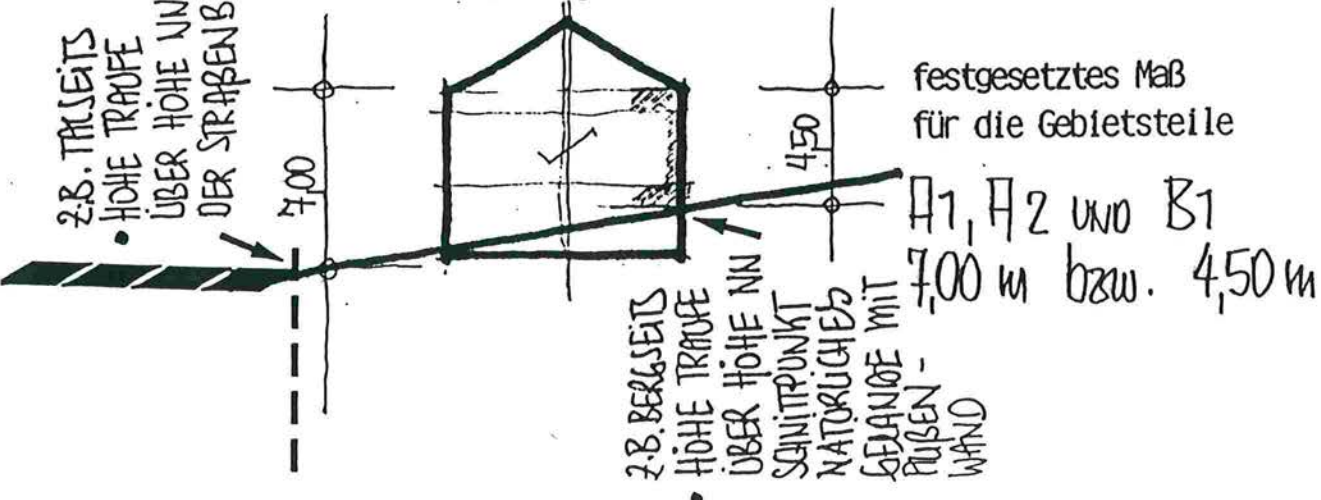 Z.B. TALSEITS
HÖHE TRAUFE
ÜBER HÖHE NN
DER STRAßENB
7,00
4,50
festgesetztes Maß
für die Gebietsteile
A1, A2 UND B1
7,00 m bzw. 4,50 m
Z.B. BERGSEITS
HÖHE TRAUFE
ÜBER HÖHE NN
SCHNITTPUNKT
NATÜRLICHES
GELÄNDE MIT
AUßEN-
WAND